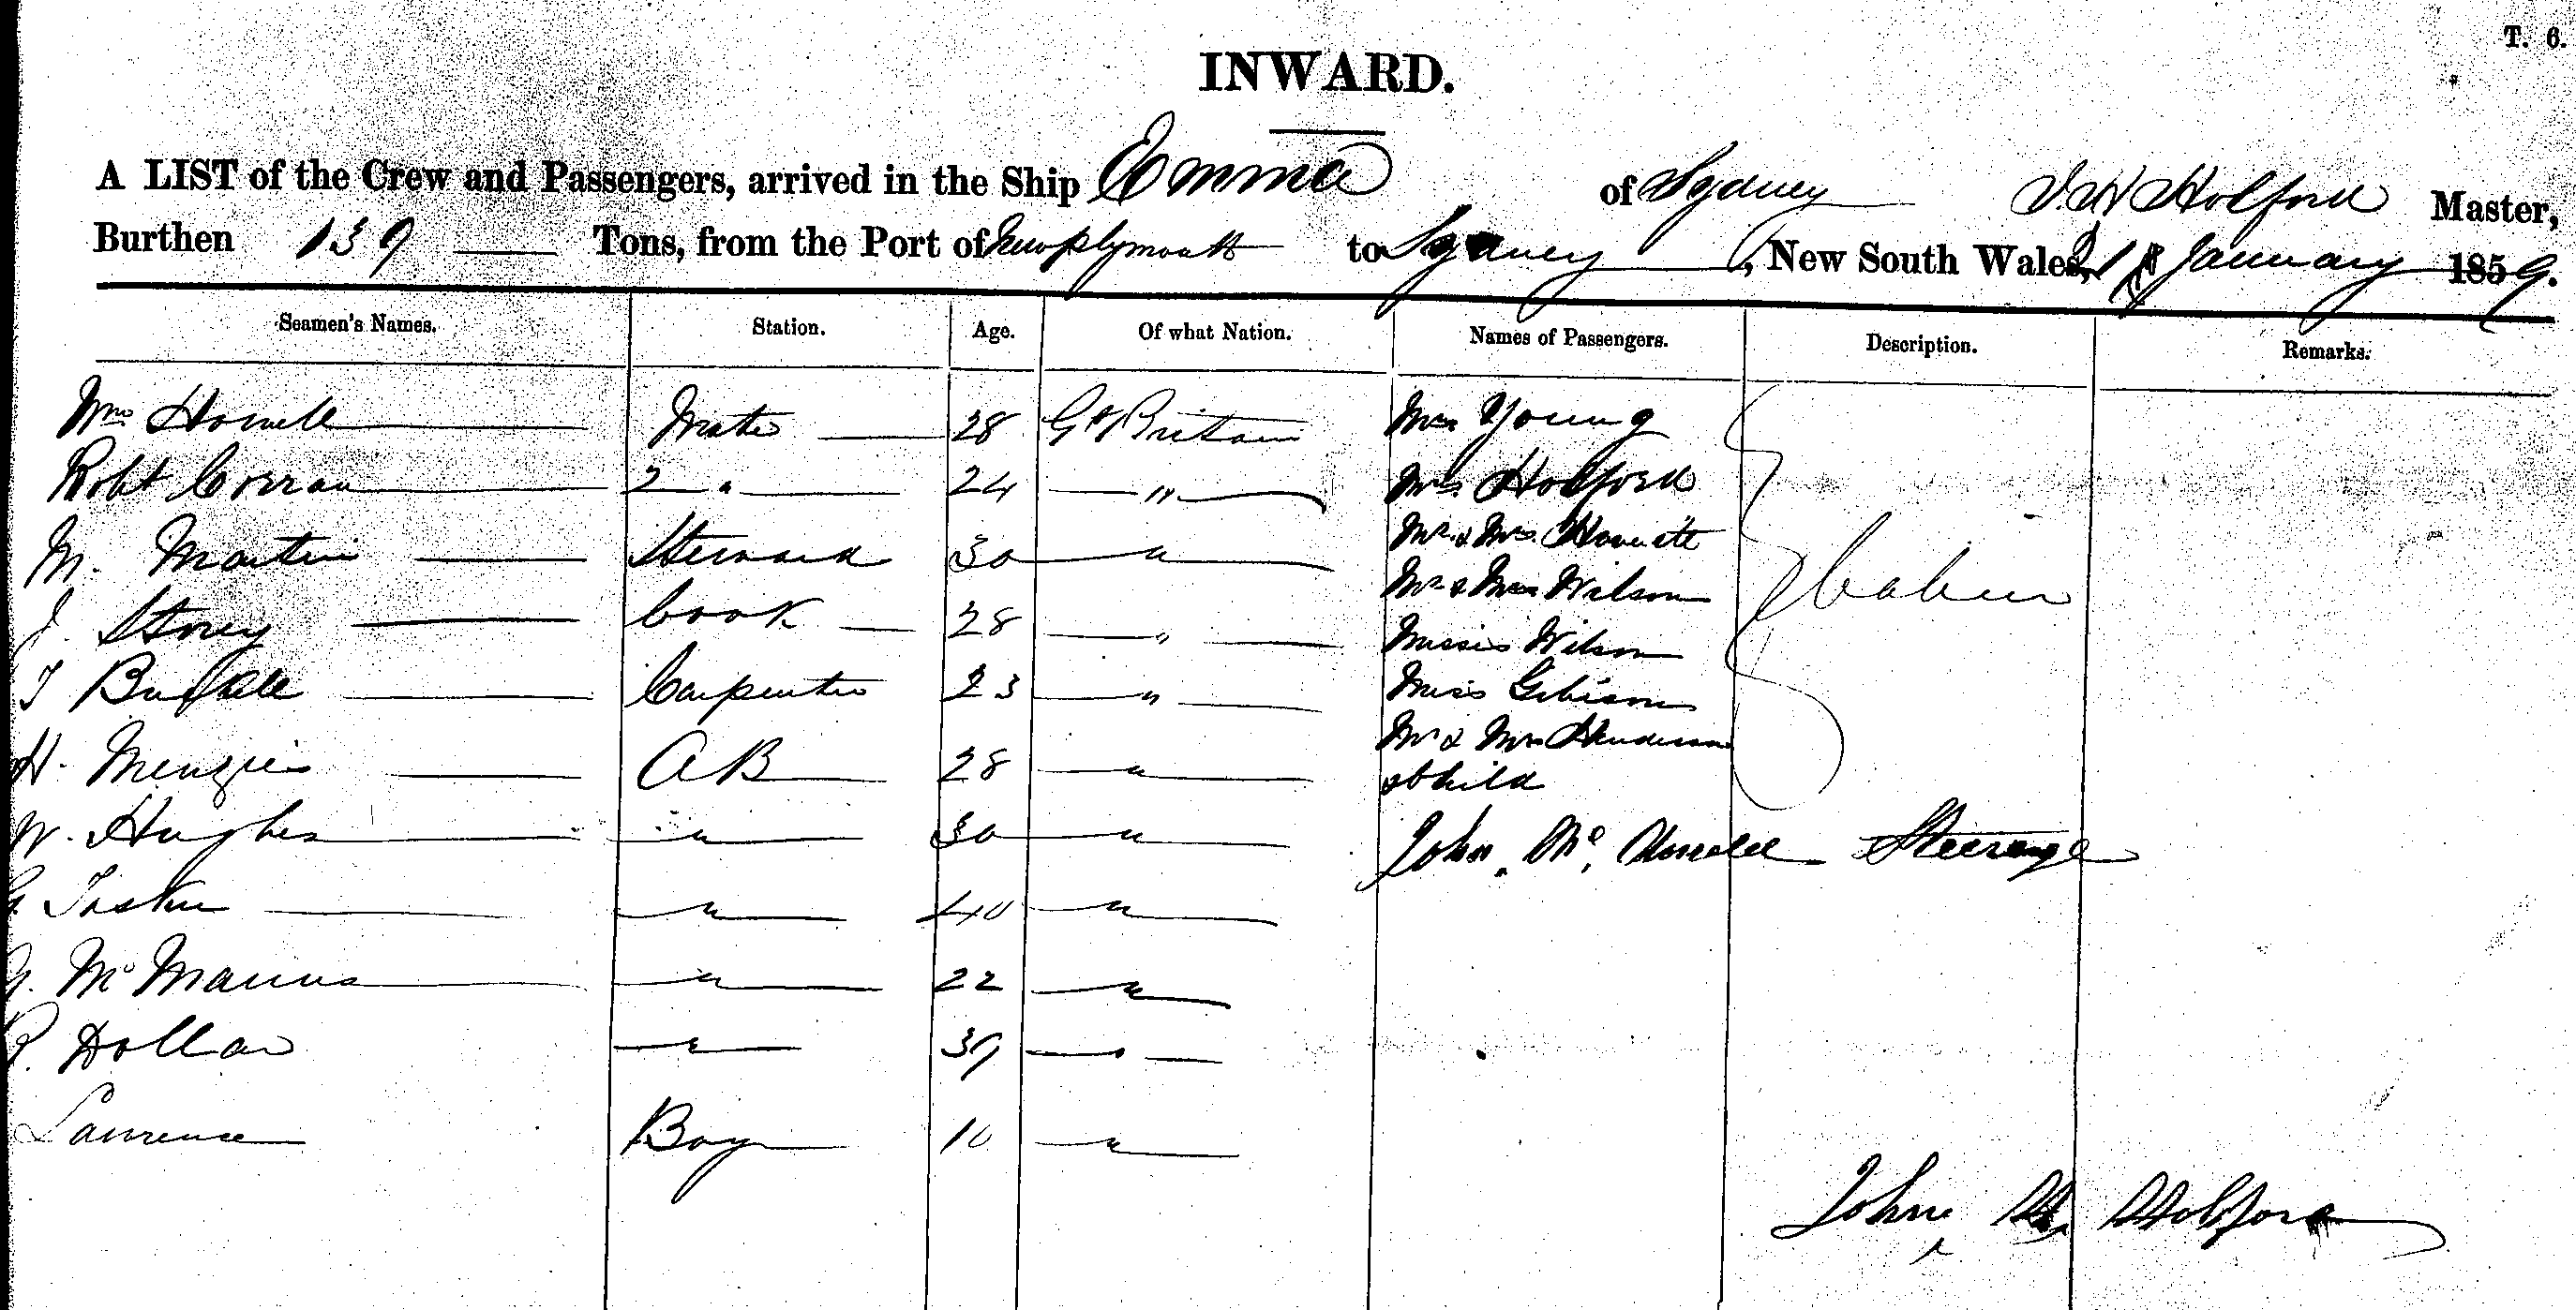 T. 6.
INWARD.
A LIST of the Crew and Passengers, arrived in the Ship Emma of Sydney J. H Holford Master,
Burthen 139 Tons, from the Port of New Plymouth to Sydney, New South Wales, January 1859.
Seamen's Names. Station. Age. Of what Nation. Names of Passengers. Description. Remarks.
Wm Howell Mate 28 Gt Britain Mrs Young
Robt Corran 2 " 24 " Mrs Holford
M. Martin Steward 30 " Mr & Mrs
J. Storey Cook 28 " Mr & Mrs Wilson Cabin
Misses Wilson
T Carpenter 23 " Miss Gibson
H. Menzies AB 28 " Mr & Mrs Henderson
& Child
W. Hughes " 30 " John Mc Steerage
G. " 40 "
McManus " 22 "
R. Dollar " 39 "
Lawrence Boy 10 "
John H. Holford